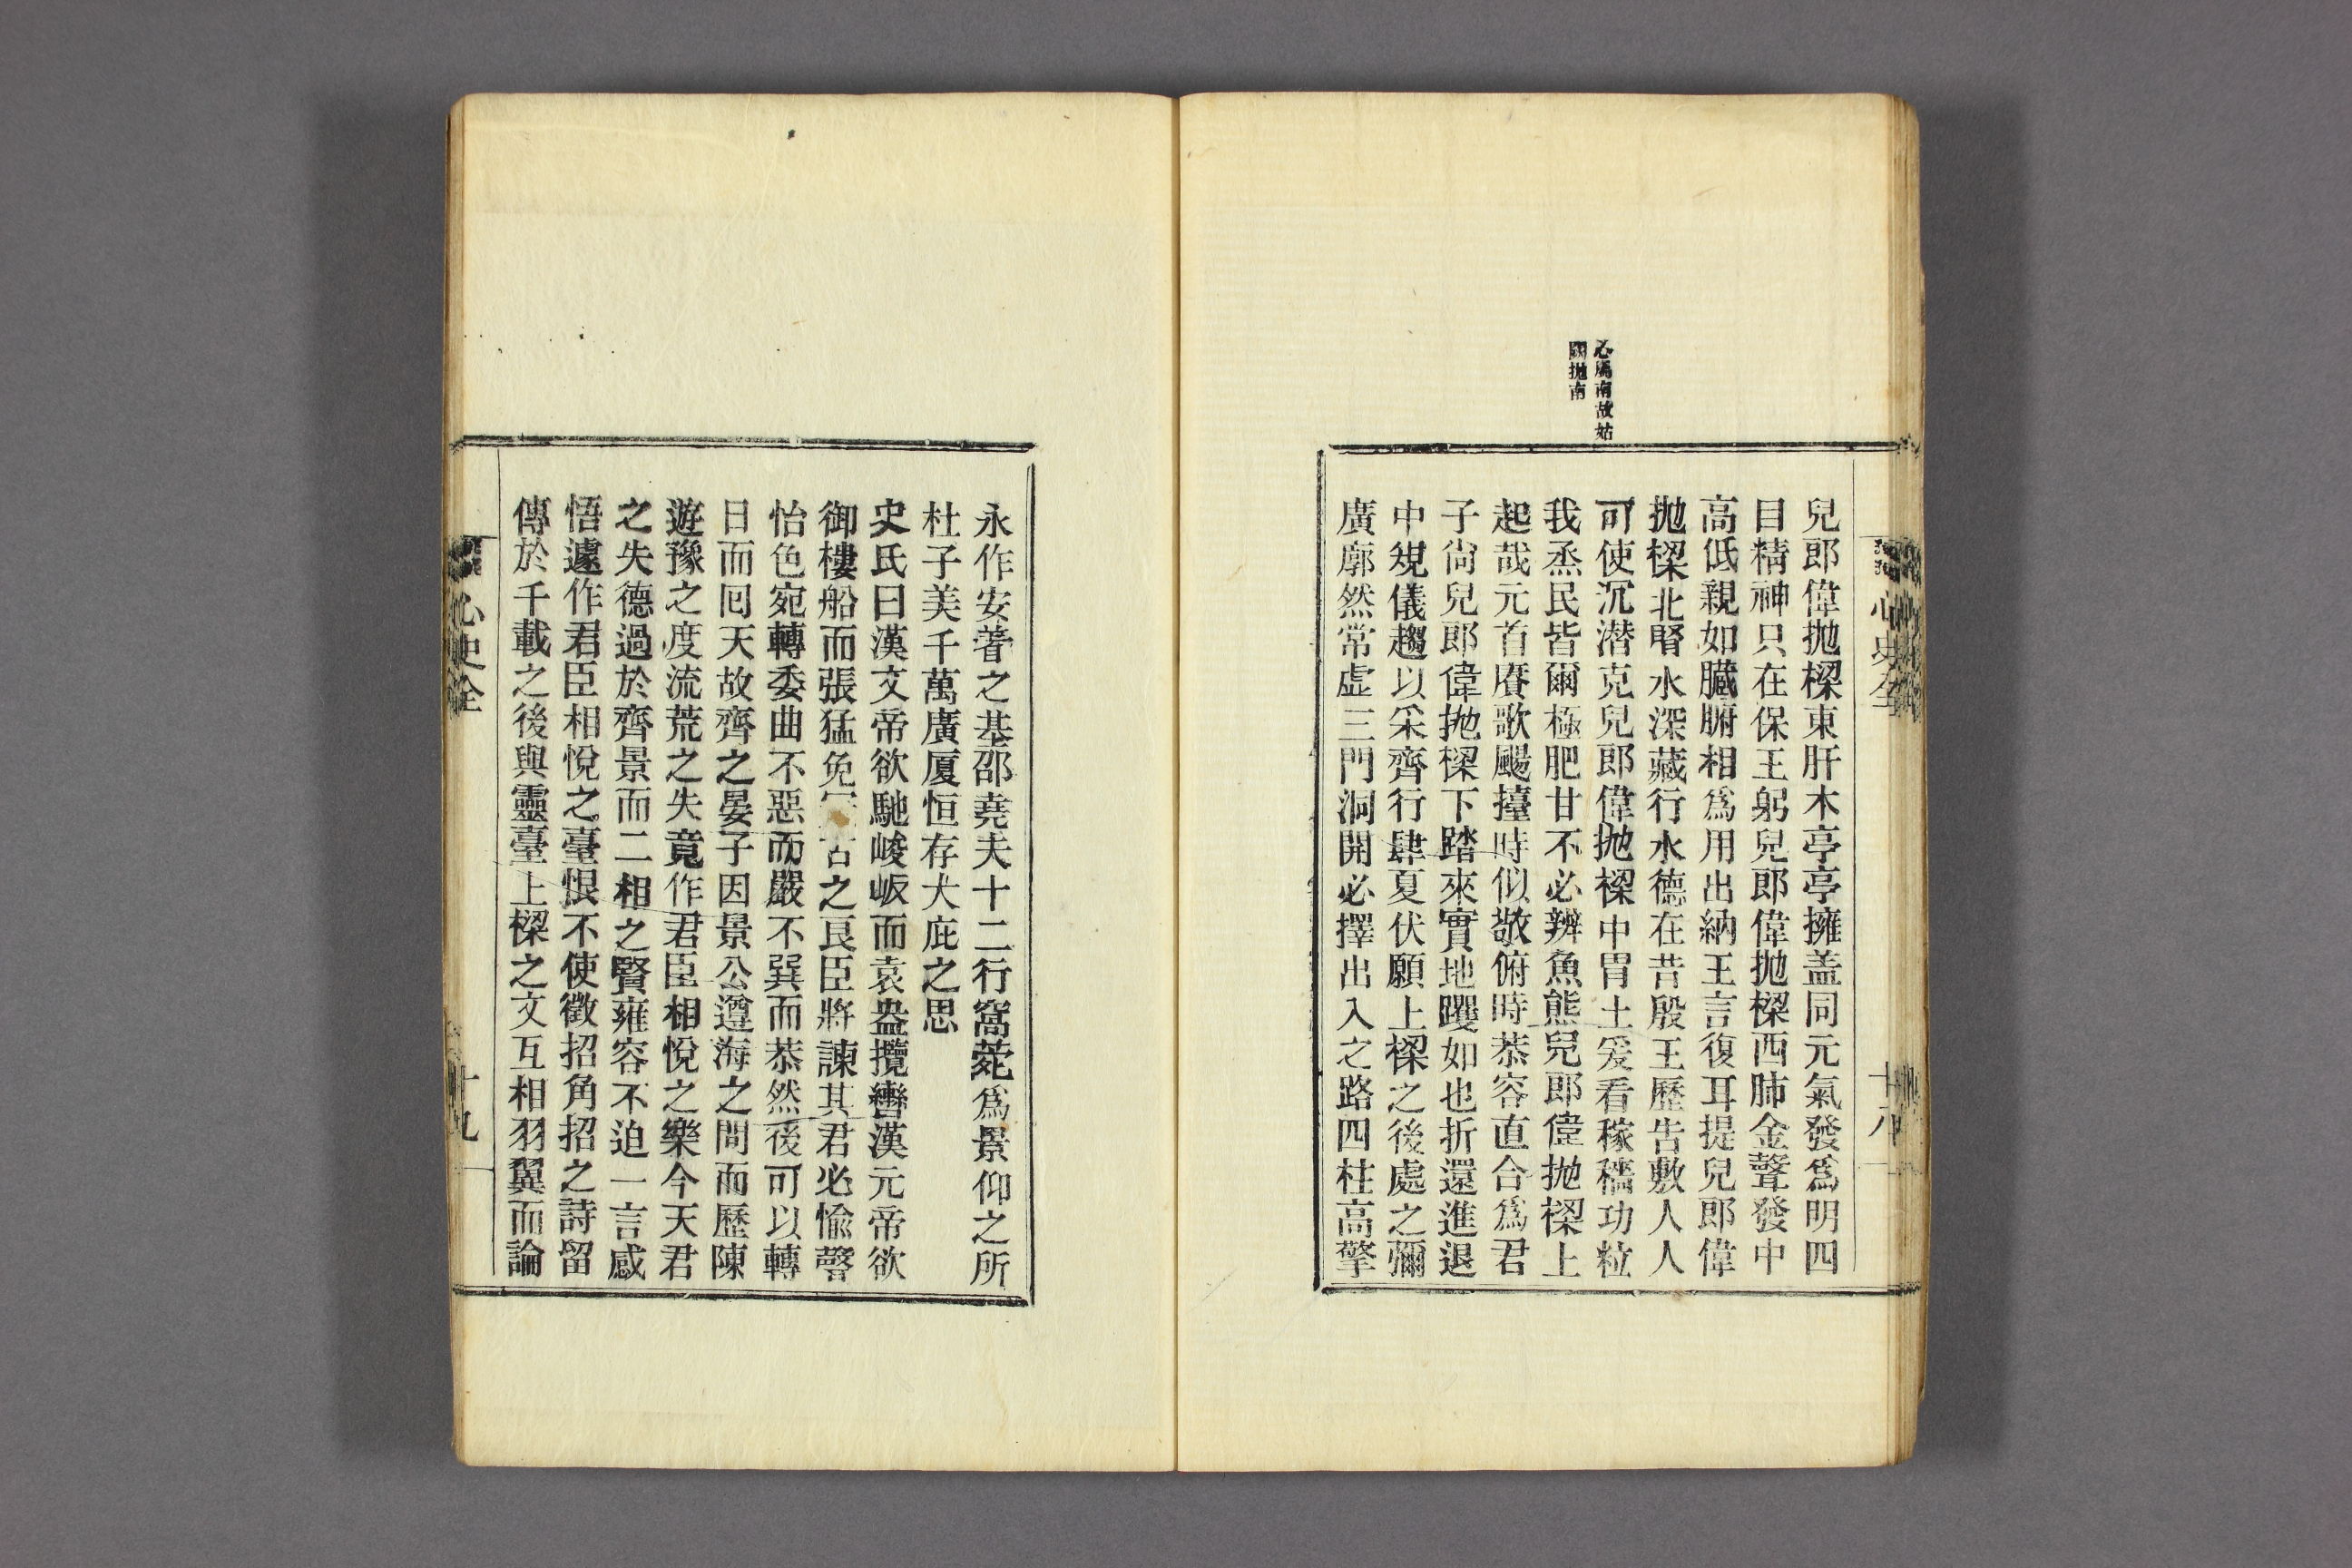 心史全
十八
兒郎偉拋樑東肝木亭亭擁盖同元氣發爲明四
目精神只在保王躬兒郎偉拋樑西肺金聲發中
高低親如臟腑相爲用出納王言復耳提兒郎偉
拋樑北腎水深藏行水德在昔殷王歷告敷人人
可使沉潛克兒郎偉拋樑中胃土爰看稼穡功粒
我烝民皆爾極肥甘不必辨魚熊兒郎偉拋樑上
起哉元首賡歌颺擡時似敬俯時恭容直合爲君
子尙兒郎偉拋樑下踏來實地躩如也折還進退
中䂓儀趨以采齊行肆夏伏願上樑之後處之彌
廣廓然常虛三門洞開必擇出入之路四柱高擎
心屬南故姑
闕拋南
永作安菩之基邵堯夫十二行窩菀爲景仰之所
杜子美千萬廣厦恒存大庇之思
史氏曰漢文帝欲馳峻岅而袁盎攬轡漢元帝欲
御樓船而張猛免冠古之良臣將諫其君必愉聲
怡色宛轉委曲不惡而嚴不巽而恭然後可以轉
日而回天故齊之晏子因景公遵海之問而歷陳
遊豫之度流荒之失竟作君臣相悅之樂今天君
之失德過於齊景而二相之賢雍容不迫一言感
悟遽作君臣相悅之臺恨不使徵招角招之詩留
傳於千載之後與靈臺上樑之文互相羽翼而論
心史全
十九